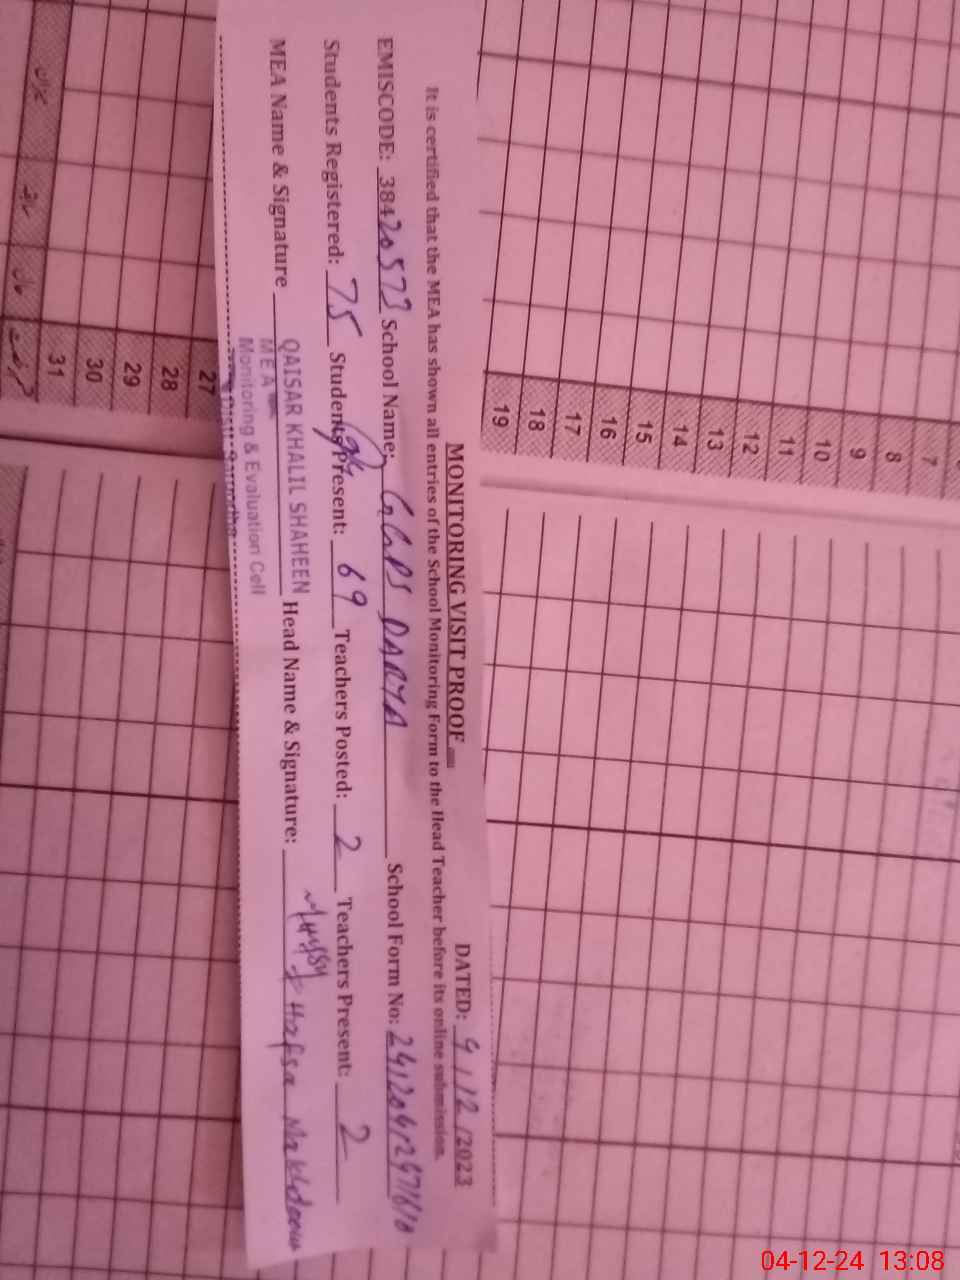 MONITORING VISIT PROOF
DATED: 4/12/2023
It is certified that the MEA has shown all entries of the School Monitoring Form to the Head Teacher before its online submission.
EMISCODE: 38420573 School Name: GGPS DARYA School Form No:
Students Registered: 75 Students Present: 69 Teachers Posted: 2 Teachers Present: 2
MEA Name & Signature QAISAR KHALIL SHAHEEN Head Name & Signature: Hafsa
MEA
Monitoring & Evaluation Cell
7
8
9
10
11
12
13
14
15
16
17
18
19
27
28
29
30
31
04-12-24 13:08